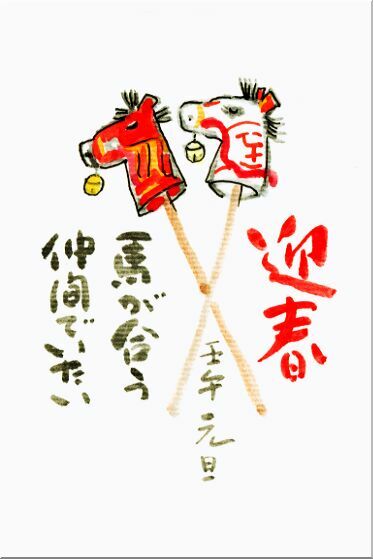 迎春
壬午元旦
馬が合う
仲間でいたい